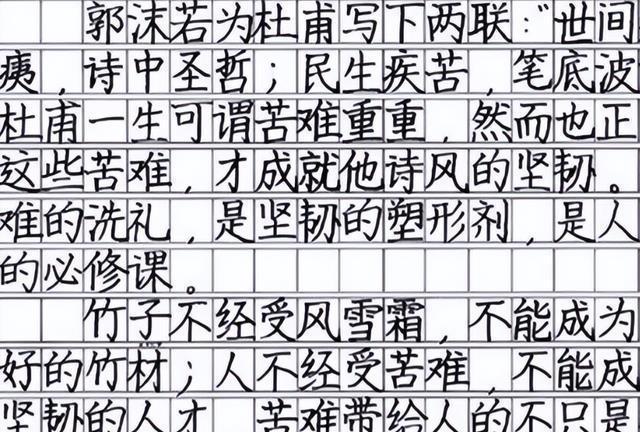 郭沫若为杜甫写下两联:“世间
痍,诗中圣哲;民生疾苦,笔底波
杜甫一生可谓苦难重重,然而也正
这些苦难,才成就他诗风的坚韧。
难的洗礼,是坚韧的塑形剂,是人
的必修课。
竹子不经受风雪霜,不能成为
好的竹材;人不经受苦难,不能成
坚韧的人才 苦难带给人的不只是